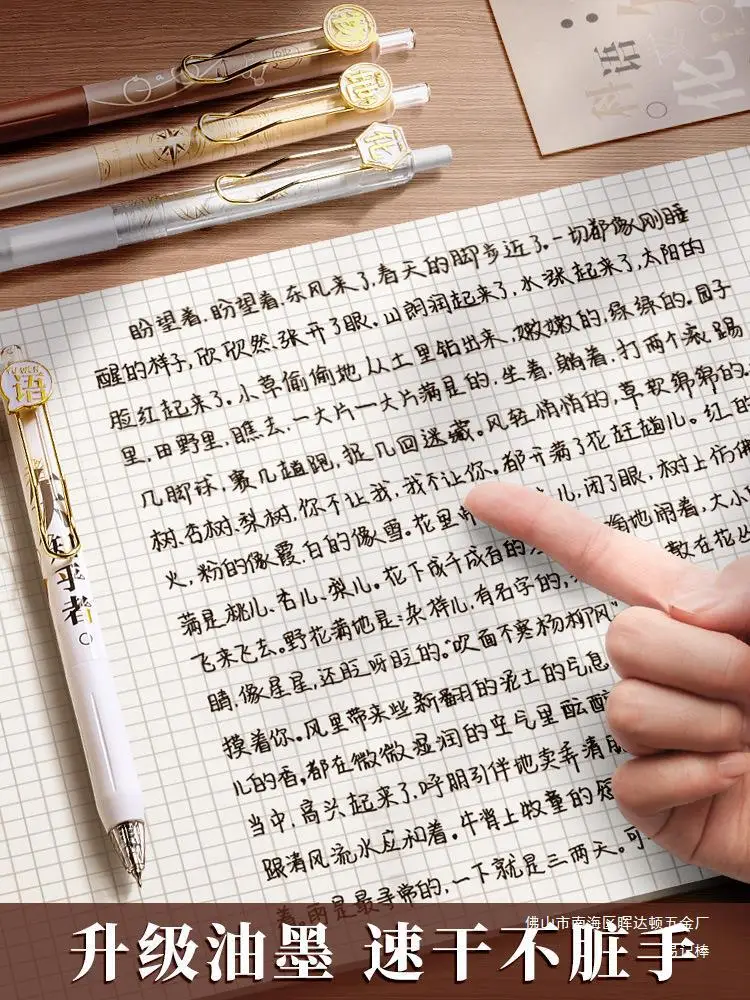 语
化
盼望着,盼望着,东风来了,春天的脚步近了。一切都像刚睡
醒的样子,欣欣然,张开了眼。山朗润起来了,水涨起来了,太阳的
脸红起来了。小草偷偷地从土里钻出来,嫩嫩的,绿绿的。园子
里,田野里,瞧去,一大片一大片满是的,坐着,躺着,打两个滚,踢
几脚球,赛几趟跑,捉几回迷藏。风轻悄悄的,草软绵绵的。
树、杏树、梨树,你不让我,我不让你。都开满了花赶趟儿。红的
火,粉的像霞,白的像雪。花里 儿,闭了眼,树上仿佛
满是桃儿、杏儿、梨儿。花下成千成百的 地闹着,大小
飞来飞去。野花满地是:杂样儿,有名字的, 散在花丛
睛,像星星,还眨呀眨的。"吹面不寒杨柳风"
摸着你。风里带来些新翻的泥土的气息
儿的香,都在微微湿润的空气里酝酿
当中,高兴起来了,呼朋引伴地卖弄清脆
跟清风流水应和着。牛背上牧童的短
着。雨是最寻常的,一下就是三两天。可
语
乎者
升级油墨 速干不脏手
佛山市南海区晖达顿五金厂
易记棒